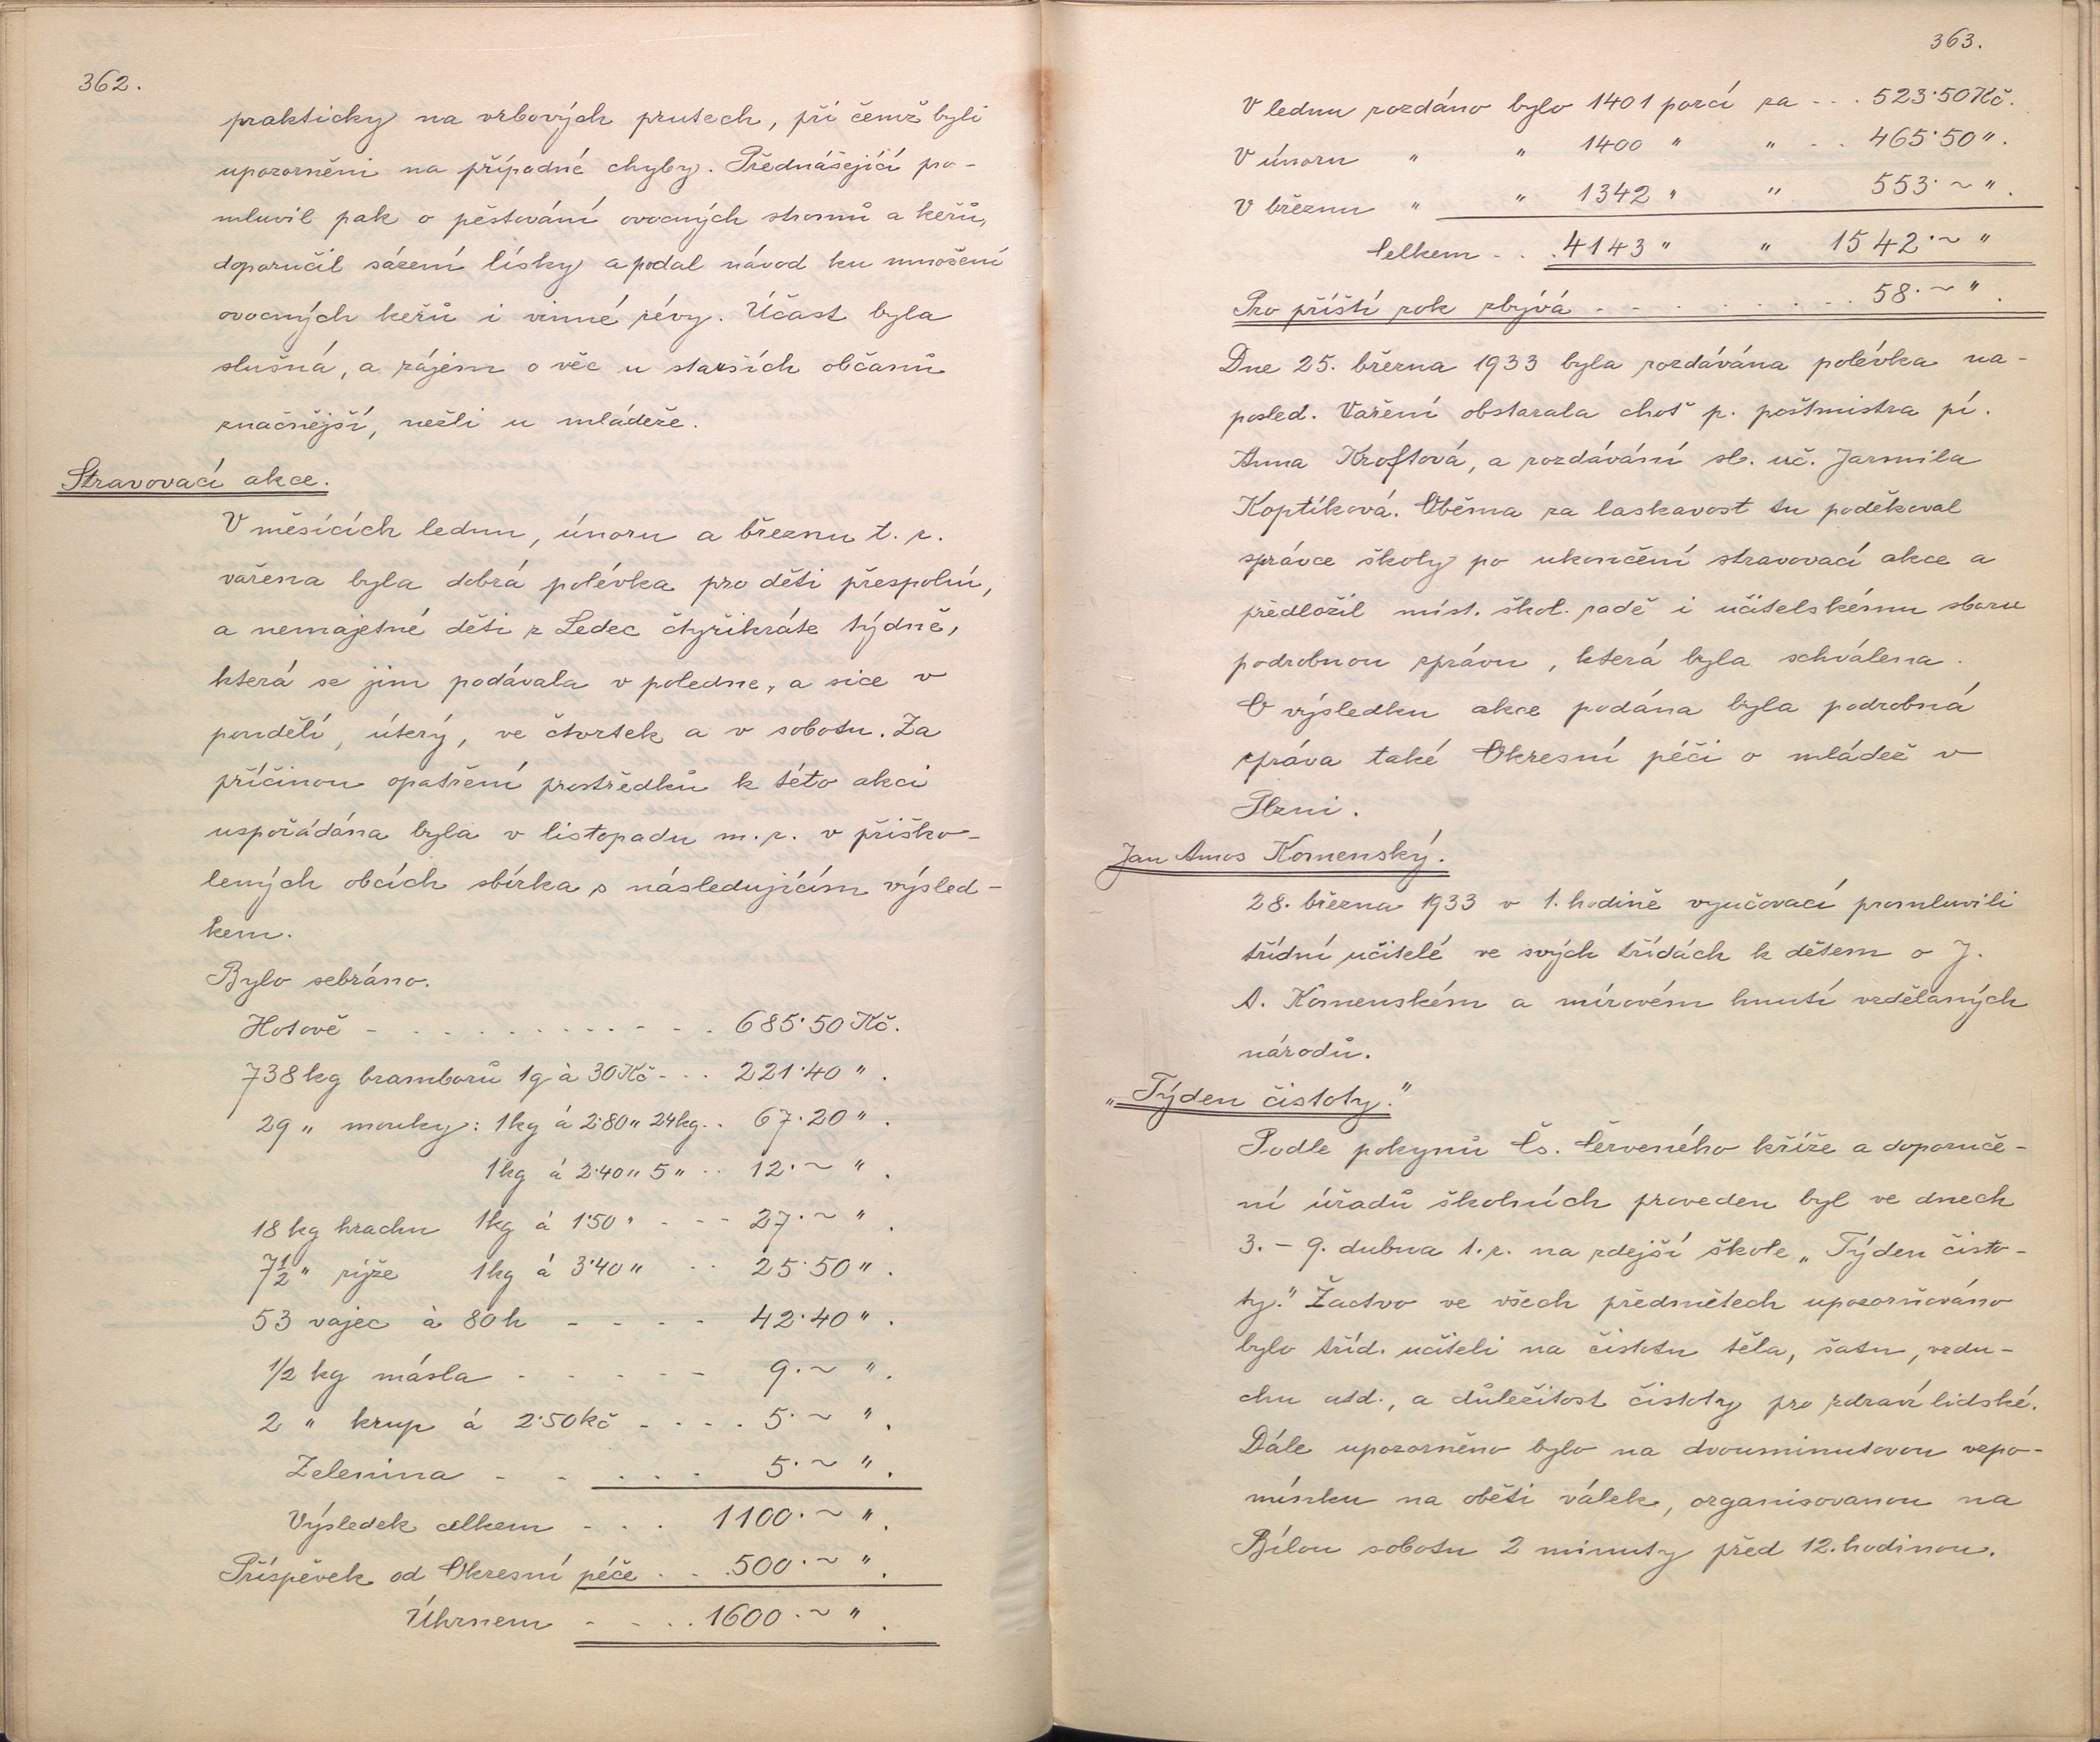 362.
prakticky na vrbových prutech, při čemž byli
upozorněni na případné chyby. Přednášející pro-
mluvil pak o pěstování ovocných stromů a keřů,
doporučil sázení lísky a podal návod ku množení
ovocných keřů i vinné révy. Účast byla
slušná, a zájem o věc u starších občanů
značnější, nežli u mládeže.
Stravovací akce.
V měsících lednu, únoru a březnu t. r.
vařena byla dobrá polévka pro děti přespolní,
a nemajetné děti z Ledec čtyřikráte týdně,
která se jim podávala v poledne, a sice v
pondělí, úterý, ve čtvrtek a v sobotu. Za
příčinou opatření prostředků k této akci
uspořádána byla v listopadu m. r. v přiško-
lených obcích sbírka s následujícím výsled-
kem.
Bylo sebráno.
Hotově - . . . . . . . . . . - - . 685·50 Kč.
738 kg bramborů 1q à 30 Kč - . . 221·40 " .
29 " mouky: 1kg á 2·80 " 24kg . . 67·20 " .
1kg á 2·40 " 5 " . . 12·~ " .
18 kg hrachu 1kg á 1·50 " . - - 27·~ " .
7½ " rýže 1kg á 3·40 " . . 25·50 " .
53 vajec à 80 h - - - - 42·40 " .
1/2 kg másla - - - - - 9·~ " .
2 " krup á 2·50 Kč - . . . 5·~ " .
Zelenina - - . . . . 5·~ " .
Výsledek celkem - . . 1100·~ " .
Příspěvek od Okresní péče . . . 500·~ " .
Úhrnem - - . . 1600·~ " .
363.
V lednu rozdáno bylo 1401 porcí za . . . 523·50 Kč.
V únoru " " 1400 " " . . 465·50 " .
V březnu " " 1342 " " 553·~ " .
Celkem . . . 4143 " " 1542·~ "
Pro příští rok zbývá - - . . . . . . . 58·~ " .
Dne 25. března 1933 byla rozdávána polévka na-
posled. Vaření obstarala choť p. poštmistra pí.
Anna Kroftová, a rozdávání sl. uč. Jarmila
Koptíková. Oběma za laskavost tu poděkoval
správce školy po ukončení stravovací akce a
předložil míst. škol. radě i učitelskému sboru
podrobnou zprávu, která byla schválena.
O výsledku akce podána byla podrobná
zpráva také Okresní péči o mládež v
Plzni.
Jan Amos Komenský.
28. března 1933 v 1. hodině vyučovací promluvili
třídní učitelé ve svých třídách k dětem o J.
A. Komenském a mírovém hnutí vzdělaných
národů.
"Týden čistoty."
Podle pokynů Čs. Červeného kříže a doporuče-
ní úřadů školních proveden byl ve dnech
3. - 9. dubna t. r. na zdejší škole „Týden čisto-
ty." Žactvo ve všech předmětech upozorňováno
bylo tříd. učiteli na čistotu těla, šatu, vzdu-
chu atd., a důležitost čistoty pro zdraví lidské.
Dále upozorněno bylo na dvouminutovou vzpo-
mínku na oběti válek, organisovanou na
Bílou sobotu 2 minuty před 12. hodinou.